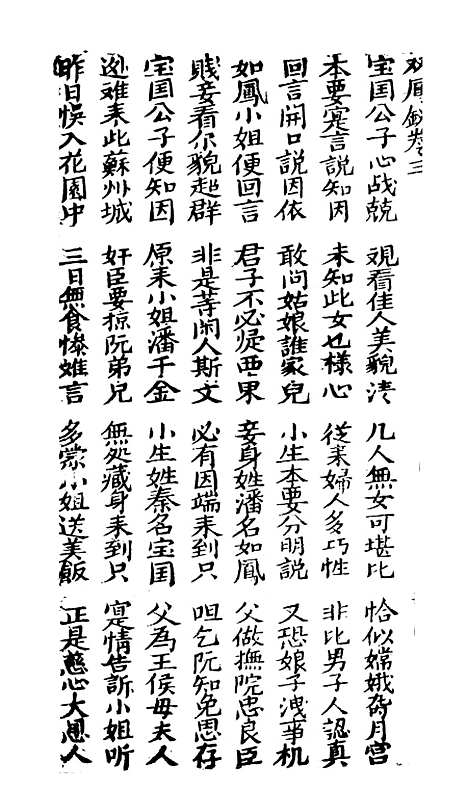 双鳳釵卷三
宝国公子心战兢 观看佳人美貌清 几人無女可堪比 恰似嫦娥奔月宫
本要寔言說知因 未知此女乜樣心 從耒婦人多巧性 非比男子人認真
回言開口說因依 敢问姑娘誰家兒 小生本要分明說 又恐娘子洩事机
如鳳小姐便回言 君子不必疑西東 妾身姓潘名如鳳 父做撫院忠良臣
賤妾看你貌超群 非是等闲人斯文 必有因端耒到只 呾乞阮知免思存
宝国公子便知因 原耒小姐潘千金 小生姓秦名宝国 父為王侯母夫人
逃难耒此蘇州城 奸臣要掠阮弟兄 無处藏身耒到只 寔情告訴小姐听
昨日悞入花園中 三日無食惨难言 多蒙小姐送美飯 正是慈心大恩人